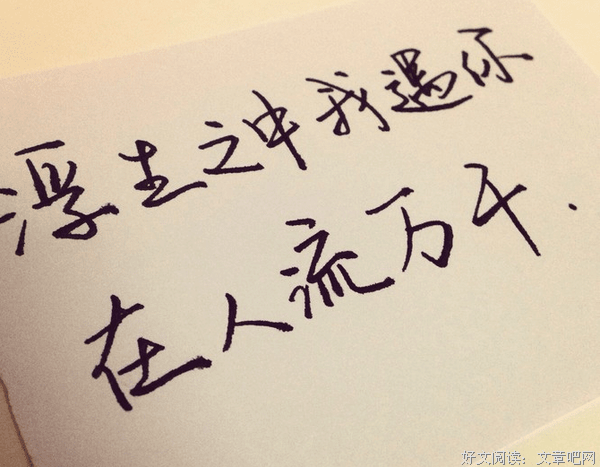 浮生之中我遇你
在人流万千.
好文阅读：文章吧网